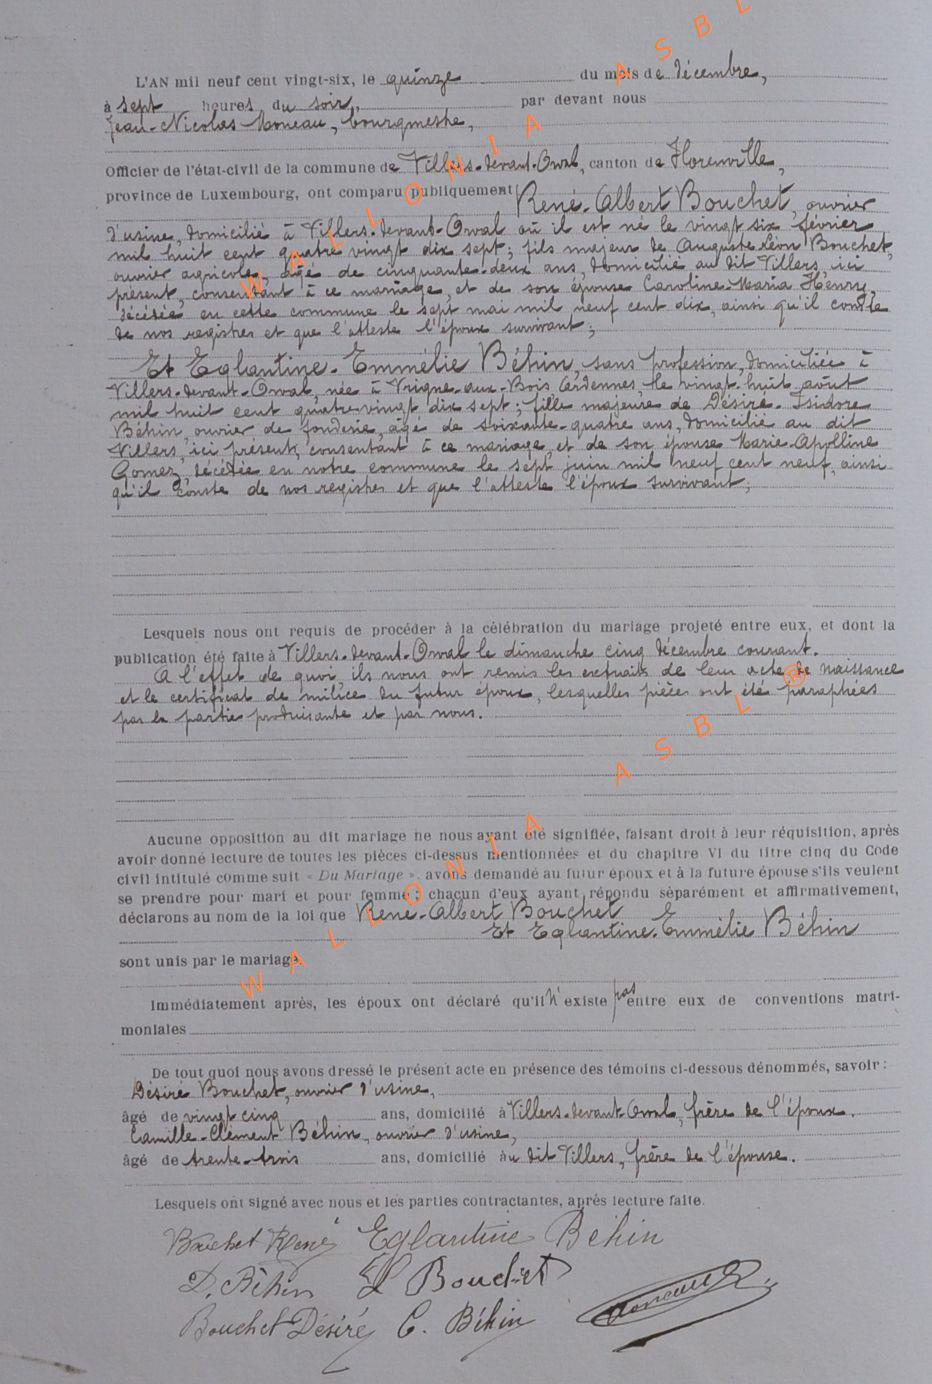 L'AN mil neuf cent vingt-six, le quinze du mois de décembre,
à sept heures du soir, par devant nous
Jean-Nicolas Moneau, bourgmestre,
Officier de l'état-civil de la commune de Villers-devant-Orval, canton de Florenville,
province de Luxembourg, ont comparu publiquement René-Albert Bouchet, ouvrier
d'usine, domicilié à Villers-devant-Orval où il est né le vingt six février
mil huit cent quatre vingt dix sept; fils majeur de Auguste Léon Bouchet,
ouvrier agricole, âgé de cinquante-deux ans, domicilié au dit Villers, ici
présent, consentant à ce mariage, et de son épouse Caroline-Maria Henry,
décédée en cette commune le sept mai mil neuf cent dix, ainsi qu'il conste
de nos registres et que l'atteste l'époux survivant;
Et Eglantine-Emmélie Béhin, sans profession, domiciliée à
Villers-devant-Orval, née à Vrigne-aux-Bois Ardennes, le vingt-huit août
mil huit cent quatre vingt dix sept; fille majeure de Désiré-Isidore
Béhin, ouvrier de fonderie, âgé de soixante-quatre ans, domicilié au dit
Villers, ici présent, consentant à ce mariage, et de son épouse Marie-Apolline
Gomez, décédée en notre commune le sept juin mil neuf cent neuf, ainsi
qu'il conste de nos registres et que l'atteste l'époux survivant;
Lesquels nous ont requis de procéder à la célébration du mariage projeté entre eux, et dont la
publication été faite à Villers-devant-Orval le dimanche cinq décembre courant.
A l'effet de quoi, ils nous ont remis les extraits de leur acte de naissance
et le certificat de milice du futur époux, lesquelles pièces ont été paraphées
par la partie produisante et par nous.
Aucune opposition au dit mariage ne nous ayant été signifiée, faisant droit à leur réquisition, après
avoir donné lecture de toutes les pièces ci-dessus mentionnées et du chapitre VI du titre cinq du Code
civil intitulé comme suit « Du Mariage ». avons demandé au futur époux et à la future épouse s'ils veulent
se prendre pour mari et pour femme; chacun d'eux ayant répondu sèparément et affirmativement,
déclarons au nom de la loi que René-Albert Bouchet
Et Eglantine-Emmélie Béhin
sont unis par le mariage.
Immédiatement après, les époux ont déclaré qu'il n'existe pas entre eux de conventions matri-
moniales
De tout quoi nous avons dressé le présent acte en présence des témoins ci-dessous dénommés, savoir:
Désiré Bouchet, ouvrier d'usine,
âgé de vingt cinq ans, domicilié à Villers-devant-Orval, frère de l'époux.
Camille-Clément Béhin, ouvrier d'usine,
âgé de trente-trois ans, domicilié au dit Villers, frère de l'épouse.
Lesquels ont signé avec nous et les parties contractantes, aprés lecture faite.
Bouchet René Eglantine Béhin
D. Béhin L Bouchet
Bouchet Désiré C. Béhin Moneau
WALLONIA ASBL
WALLONIA ASBL ®